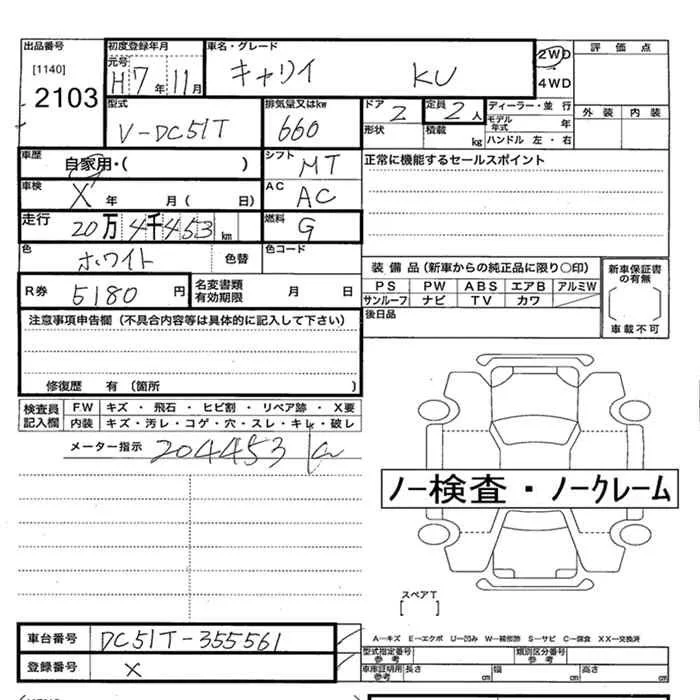 出品番号 初度登録年月 車名・グレード 評価点
[1140] 元号 2WD
2103 H7年11月 キャリイ KU 4WD
型式 排気量又はkw ドア 2 定員 2人 ディーラー・並行 外装 内装
V-DC51T 660 形状 積載 kg モデル年式 年
ハンドル 左・右
車歴 自家用・( ) シフト MT 正常に機能するセールスポイント
車検 X 年 月( 日) AC AC
走行 20万4千453km 燃料 G
色 ホワイト 色替 色コード
装備品(新車からの純正品に限り○印) 新車保証書の有無
R券 5180円 名変書類有効期限 月 日 PS PW ABS エアB アルミW
サンルーフ ナビ TV カワ
注意事項申告欄(不具合内容等は具体的に記入して下さい) 後日品 車載不可
修復歴 有(箇所 )
検査員記入欄 FW キズ・飛石・ヒビ割・リペア跡・X要
内装 キズ・汚レ・コゲ・穴・スレ・キレ・破レ
メーター指示 204453km
ノー検査・ノークレーム
スペアT
[ ]
車台番号 DC51T-355561 A-キズ E-エクボ U-凹み W-補修跡 S-サビ C-腐食 XX-交換済
型式指定番号参考 類別区分番号参考
登録番号 X 車庫証明用参考 長さ cm 幅 cm 高さ cm